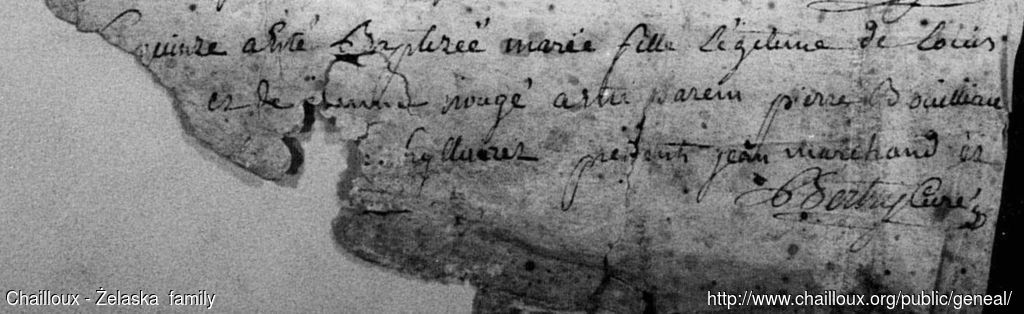 quinze a Eté Baptizeë marie fille légitime de Louis
et de nougé a eu parein pierre Bouilliau
presents jean marchand et
Bertry Curé
Chailloux - Żelaska family
http://www.chailloux.org/public/geneal/